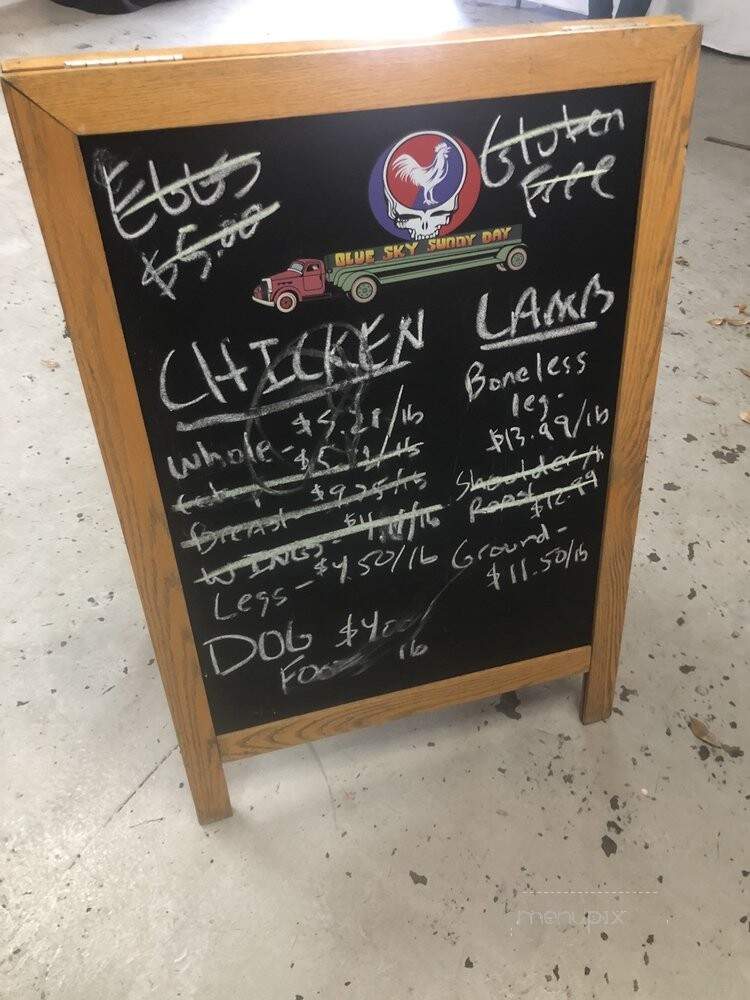 EGGS
$5.00
Gluten
Free
BLUE SKY SUNNY DAY
CHICKEN
Whole - $5.21/lb
$9.25/lb
Breast
WINGS - /lb
Legs - $4.50/lb
DOG $4.00
Food lb
LAMB
Boneless
leg -
$13.99/lb
Shoulder
Roast $12.99
Ground -
$11.50/lb
menupix